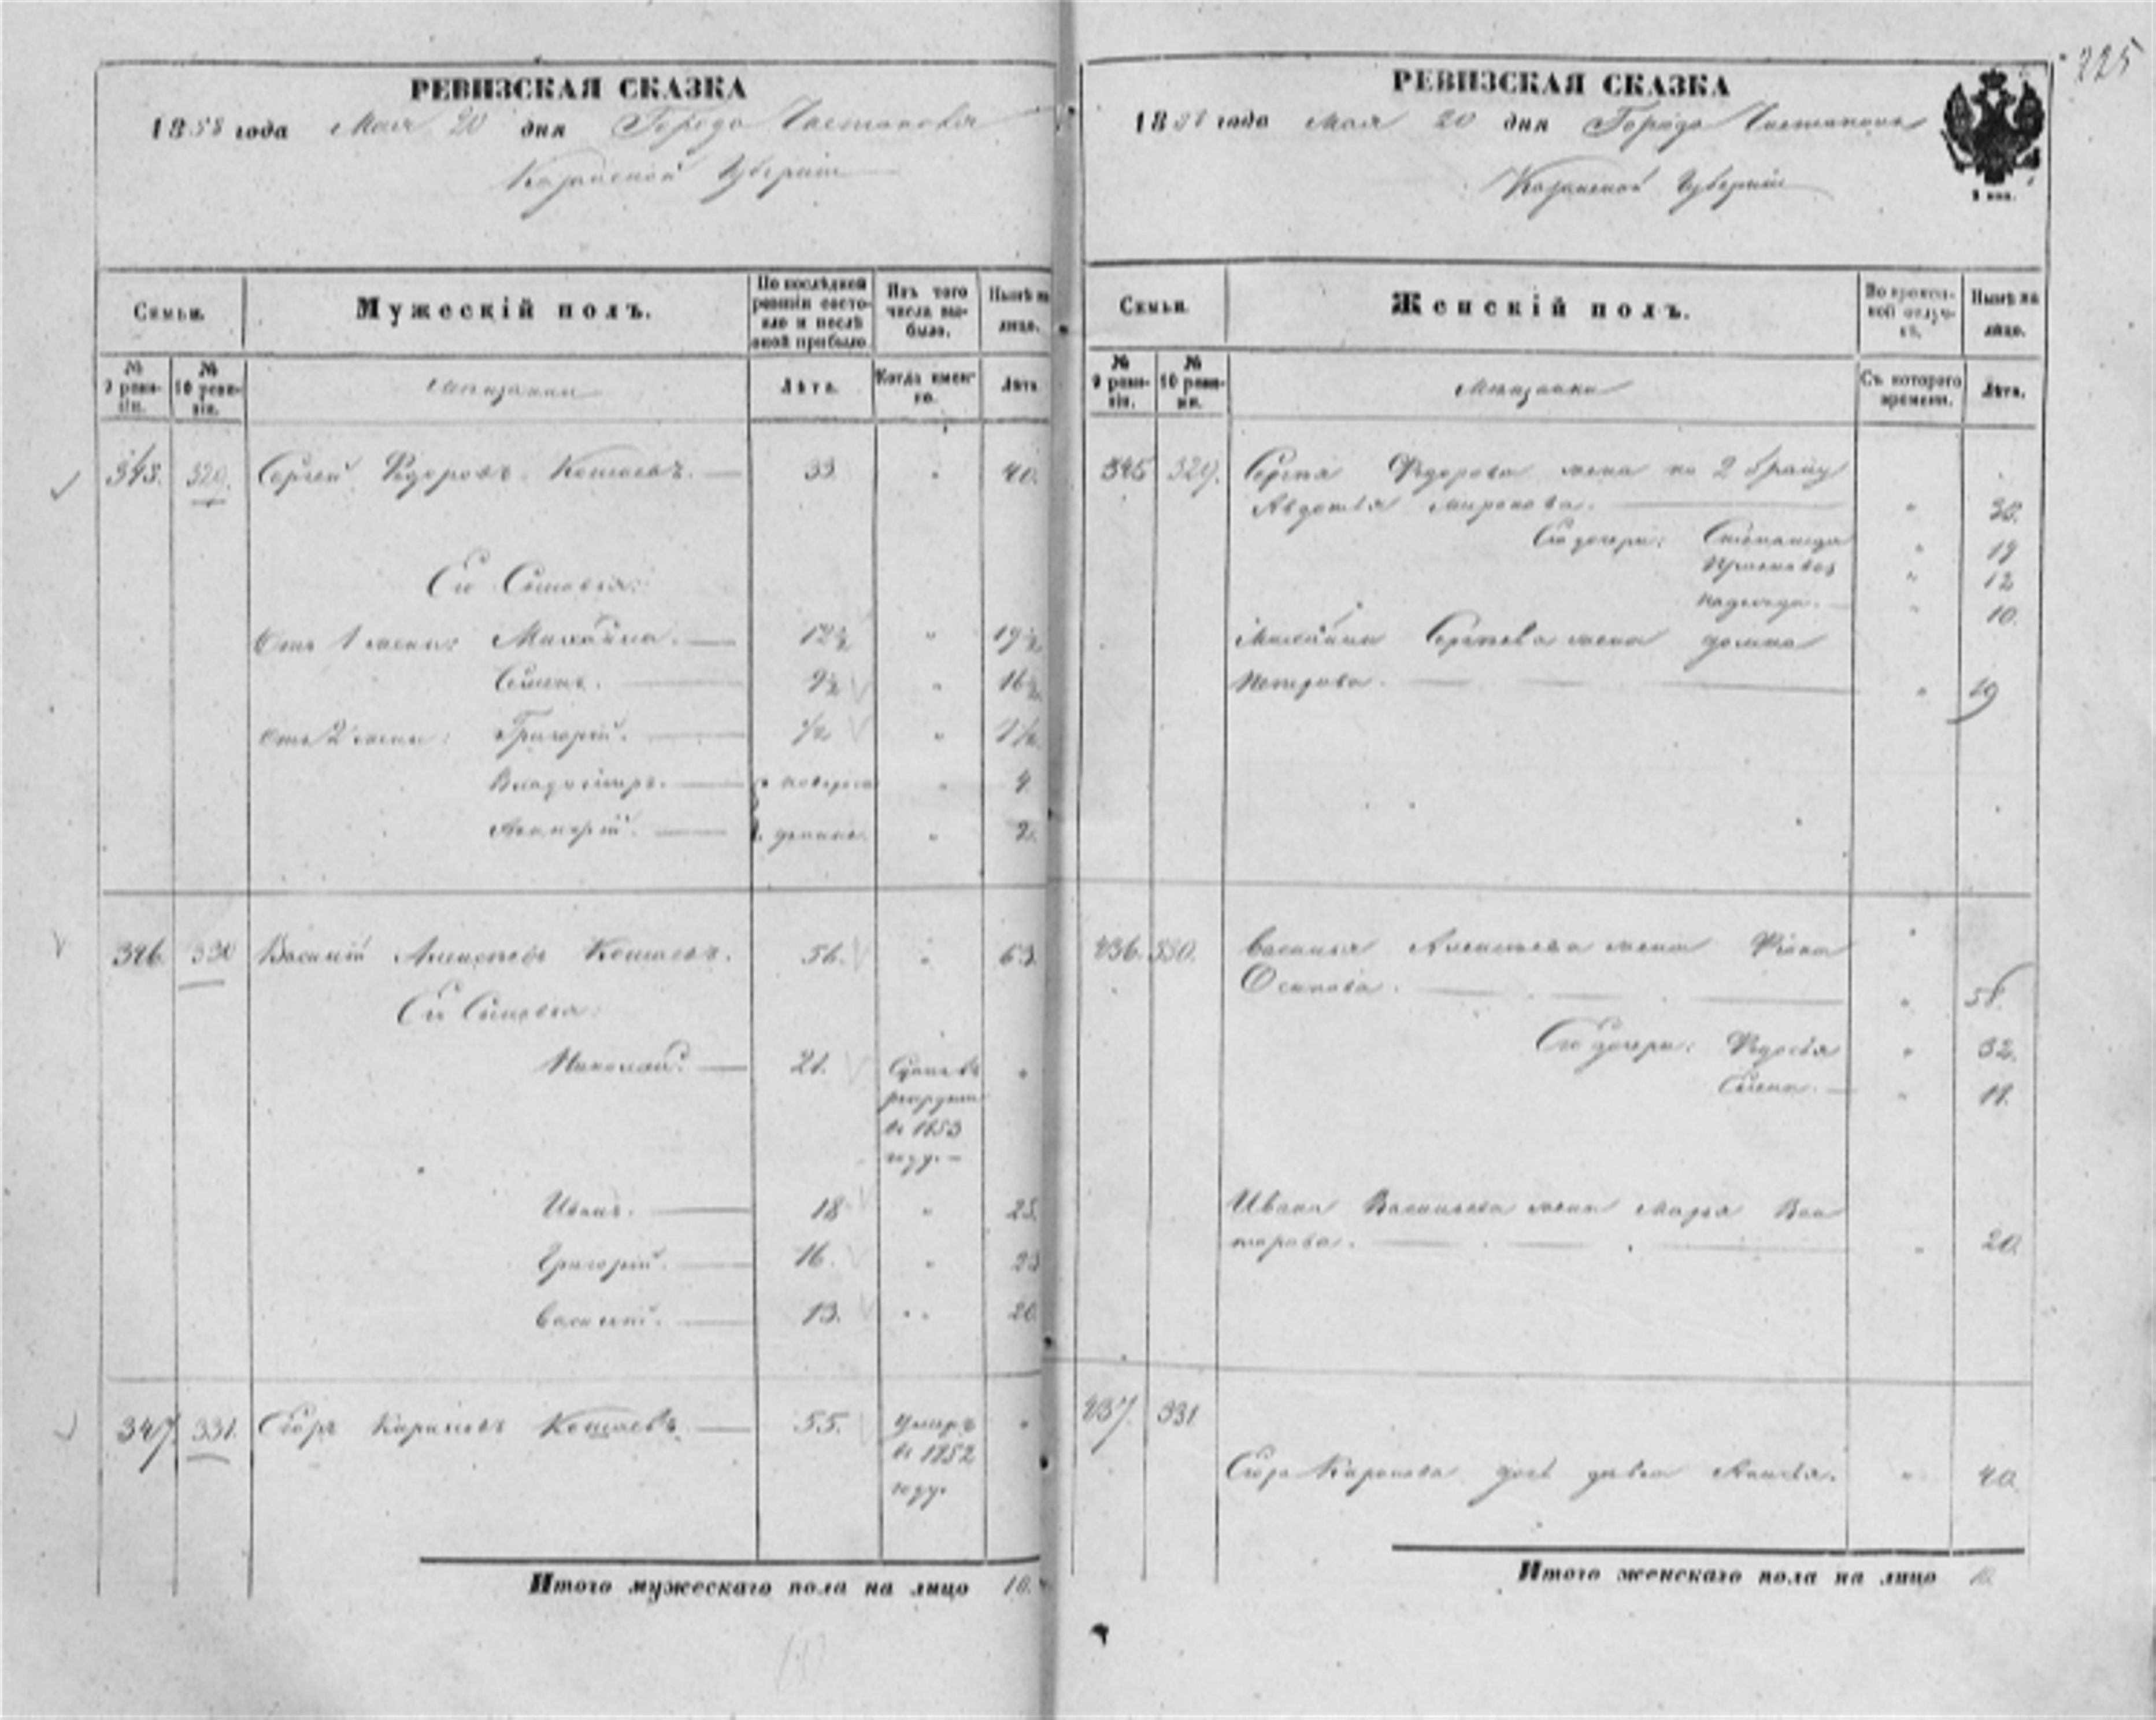 РЕВИЗСКАЯ СКАЗКА
1858 года Мая 20 дня Города Чистополя
Казанской Губернии
Семьи.
Мужескій полъ.
По послѣдней ревизіи состояло и послѣ оной прибыло.
Изъ того числа выбыло.
Нынѣ на лицо.
№ 9 ревизіи.
№ 10 ревизіи.
Мѣщане
Лѣта.
Когда именно.
Лѣта
345. 329. Сергей Федоровъ Кошаевъ. 33. " 40.
Его Сыновья:
Отъ 1 жены: Михайла. 12½ " 19½
Семенъ. 9½ " 16½
Отъ 2 жены: Григорій. ½ " 7½
Владиміръ. послѣ " 4.
" 2.
346. 330 Василій Алексѣевъ Кошаевъ. 56. " 63.
Его Сыновья:
Николай. 21. Сданъ въ "
рекруты
въ 1853
году.
Иванъ. 18 " 25.
Григорій. 16. " 23
Василій. 13. " 20.
347. 331. Егоръ Кириловъ Кошаевъ 55. умеръ "
въ 1852
году.
Итого мужескаго пола на лицо 10.
225
РЕВИЗСКАЯ СКАЗКА
1858 года Мая 20 дня Города Чистополя
Казанской Губерніи
Семьи.
Женскій полъ.
Во временной отлучкѣ.
Нынѣ на лицо.
№ 9 ревизіи.
№ 10 ревизіи.
Мѣщанки
Съ котораго времени.
Лѣта.
345 329. Сергея Федорова жена по 2 браку
Авдотья Миронова. " 30.
Его дочери: Степанида " 19
Прасковья " 12
Надежда. " 10.
Михайлы Сергѣева жена Домна
Петрова. " 19
436. 330. Василья Алексѣева жена
Осипова. " 58.
Его дочери: Федосья " 32.
Елена. "
Ивана Васильева жена Марья Вик
торова. " 20.
437. 331
Егора Кирилова дочь дѣвка " 40.
Итого женскаго пола на лицо 10.